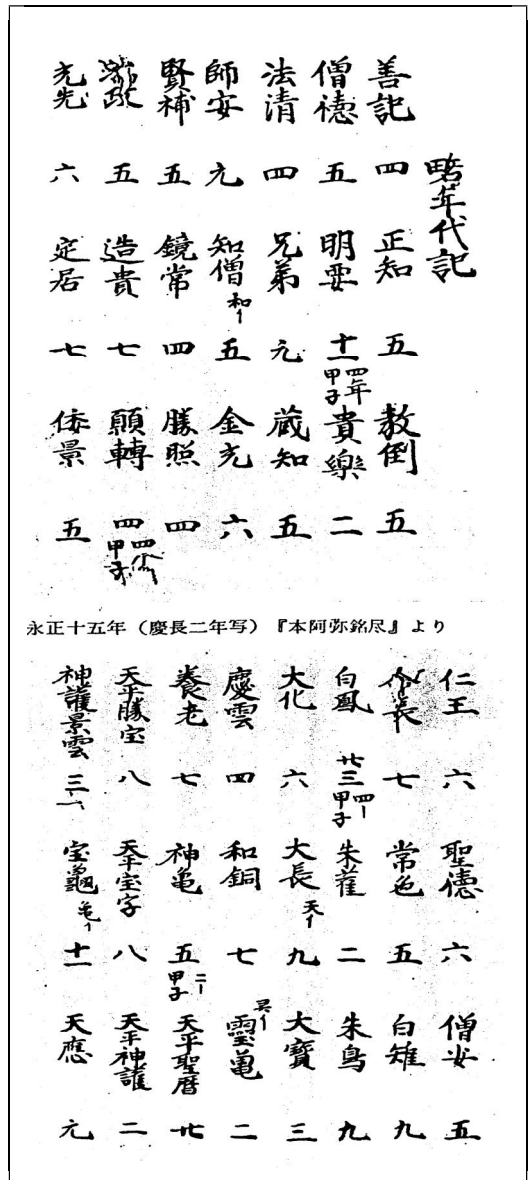 畧年代記
善記 四 正知 五 教倒 五
僧徳 五 明要 十一 四年甲子 貴樂 二
法清 四 兄弟 元 蔵知 五
師安 元 知僧 和ー 五 金光 六
賢補 五 鏡常 四 勝照 四
政 五 造貴 七 願轉 四 甲子
光充 六 定居 七 倭景 五
永正十五年（慶長二年写）『本阿弥銘尽』より
仁王 六 聖徳 六 僧安 五
長 七 常色 五 白雉 九
白鳳 廿三 四ー甲子 朱雀 二 朱鳥 九
大化 六 大長 天ー 九 大寶 三
慶雲 四 和銅 七 霊亀 二
養老 七 神亀 五 二ー甲子 天平聖暦 廿
天平勝宝 八 天平宝字 八 天平神護 二
神護景雲 三 宝龜 亀ー 十一 天應 元